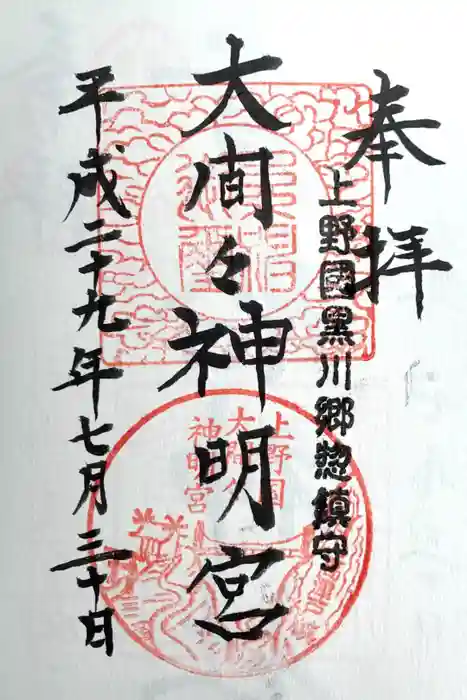 奉拝
上野國黒川郷惣鎮守
大間々神明宮
平成二十九年七月三十日
上野国
大間々
神明宮